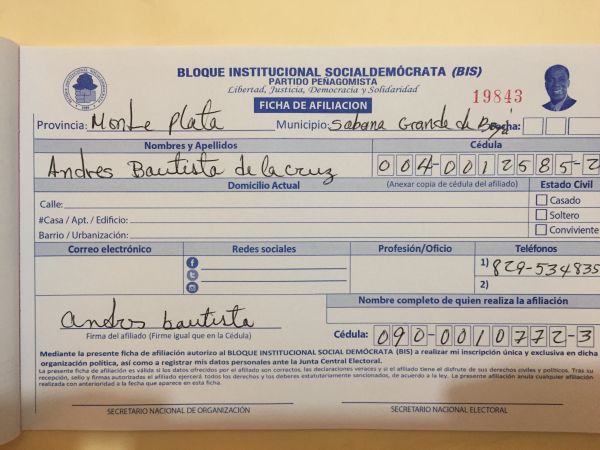 BLOQUE INSTITUCIONAL SOCIALDEMÓCRATA (BIS)
PARTIDO PEÑAGOMISTA
Libertad, Justicia, Democracia y Solidaridad
19843
FICHA DE AFILIACION
Provincia: Monte Plata Municipio: Sabana Grande de Boyá Fecha:
Nombres y Apellidos Cédula
Andres Bautista de la cruz 004-0012585-2
Domicilio Actual (Anexar copia de cédula del afiliado) Estado Civil
Calle: Casado
#Casa / Apt. / Edificio: Soltero
Barrio / Urbanización: Conviviente
Correo electrónico Redes sociales Profesión/Oficio Teléfonos
1) 829-534835
2)
Nombre completo de quien realiza la afiliación
andres bautista
Firma del afiliado (Firme igual que en la Cédula) Cédula: 090-0010772-3
Mediante la presente ficha de afiliación autorizo al BLOQUE INSTITUCIONAL SOCIAL DEMÓCRATA (BIS) a realizar mi inscripción única y exclusiva en dicha
organización política, así como a registrar mis datos personales ante la Junta Central Electoral.
La presente ficha de afiliación es válida si los datos ofrecidos por el afiliado son correctos, las declaraciones veraces y si el afiliado tiene el disfrute de sus derechos civiles y políticos. Tras su
recepción, sello y firmas autorizadas el afiliado ejercerá todos los derechos y los deberes estatutariamente sancionados, de acuerdo a la ley. La presente afiliación anula cualquier afiliación
realizada con anterioridad a la fecha que aparece en esta ficha.
SECRETARIO NACIONAL DE ORGANIZACIÓN SECRETARIO NACIONAL ELECTORAL